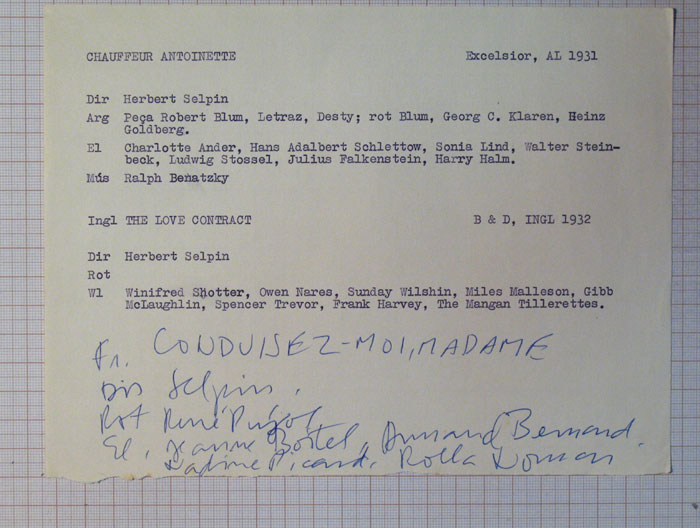 CHAUFFEUR ANTOINETTE Excelsior, AL 1931
Dir Herbert Selpin
Arg Peça Robert Blum, Letraz, Desty; rot Blum, Georg C. Klaren, Heinz
Goldberg.
El Charlotte Ander, Hans Adalbert Schlettow, Sonia Lind, Walter Stein-
beck, Ludwig Stossel, Julius Falkenstein, Harry Halm.
Mús Ralph Benatzky
Ingl THE LOVE CONTRACT B & D, INGL 1932
Dir Herbert Selpin
Rot
Wl Winifred Shotter, Owen Nares, Sunday Wilshin, Miles Malleson, Gibb
McLaughlin, Spencer Trevor, Frank Harvey, The Mangan Tillerettes.
Fr. CONDUISEZ-MOI, MADAME
Dir Selpin.
Rot René Pujol
El. Jeanne Boitel, Armand Bernard.
Nadine Picard. Rolla Norman